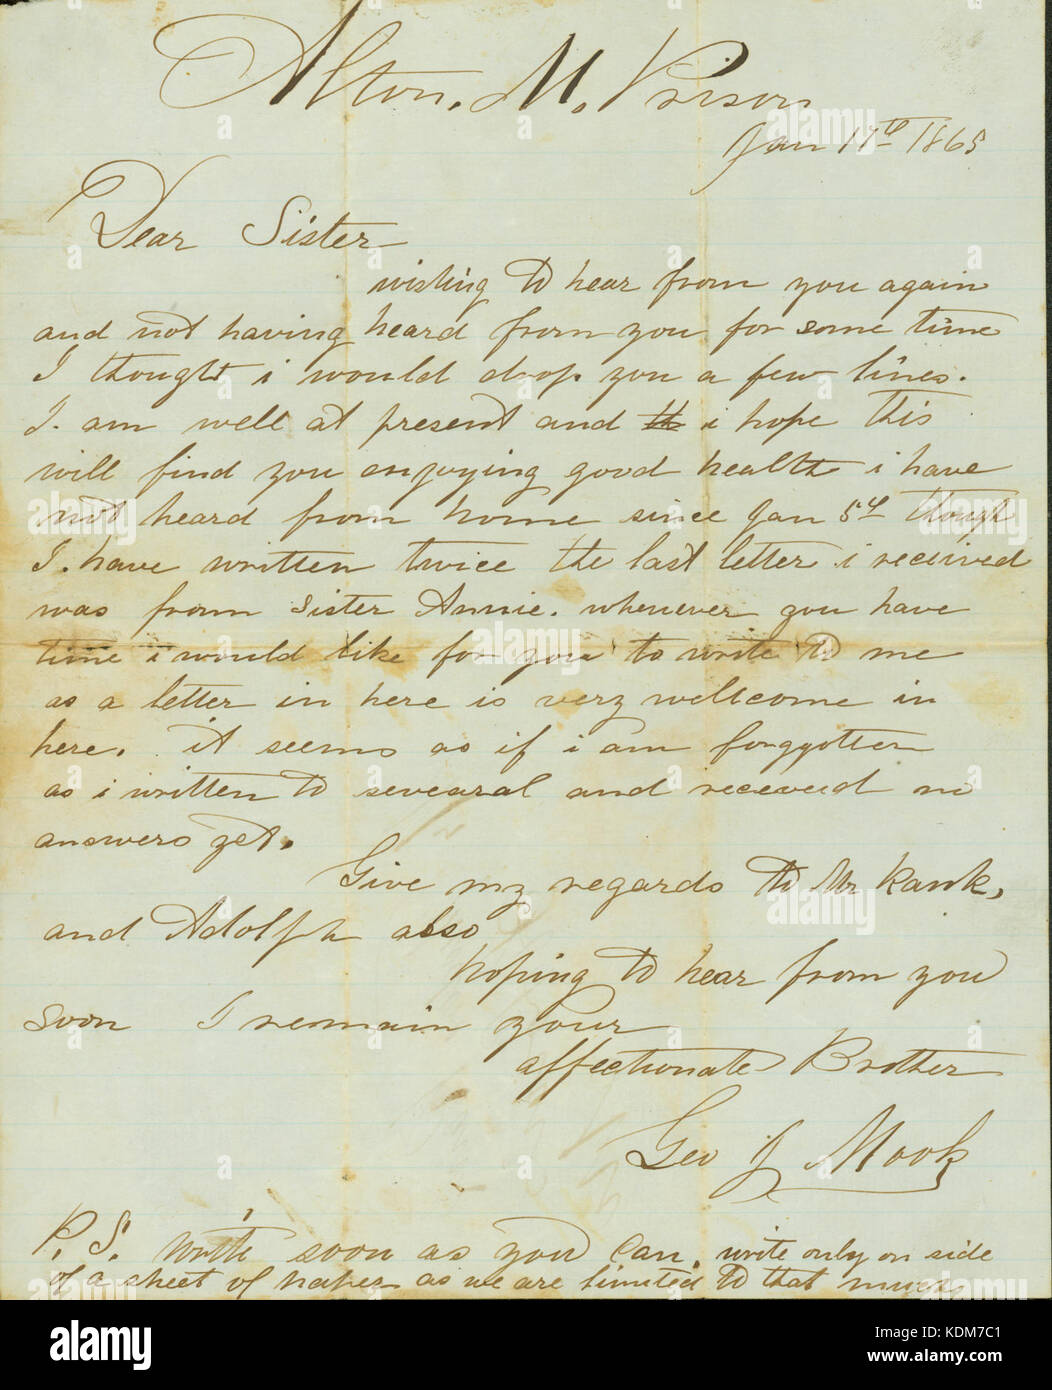 Alton, M. Prison
Jan 17th 1865
Dear Sister
wishing to hear from you again
and not having heard from you for some time
I thought i would drop you a few lines.
I. am well at present and th i hope this
will find you enjoying good health i have
not heard from home since Jan 5th though
I. have written twice the last letter i received
was from Sister Annie. whenever you have
time i would like for you to write to me
as a letter in here is very wellcome in
here. it seems as if i am forggotten
as i written to sevearal and receved no
answers yet.
Give my regards to Mr Kank,
and Adolph also
hoping to hear from you
soon I remain your
affectionate Brother
Geo J Mook
P. S. write soon as you can. write only on side
of a sheet of paper as we are limited to that much
alamy
alamy stock photo
KDM7C1
www.alamy.com